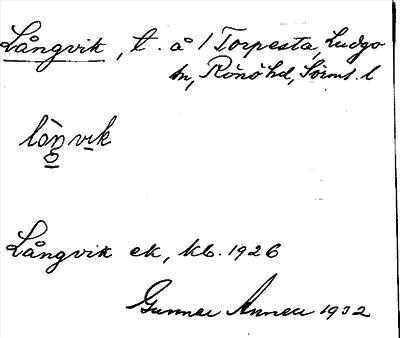 Långvik, t. å / Torpesta, Ludgo
sn, Rönö hd, Sörml. l
Långvik ek, kb. 1926
Gunnar Annell 1932